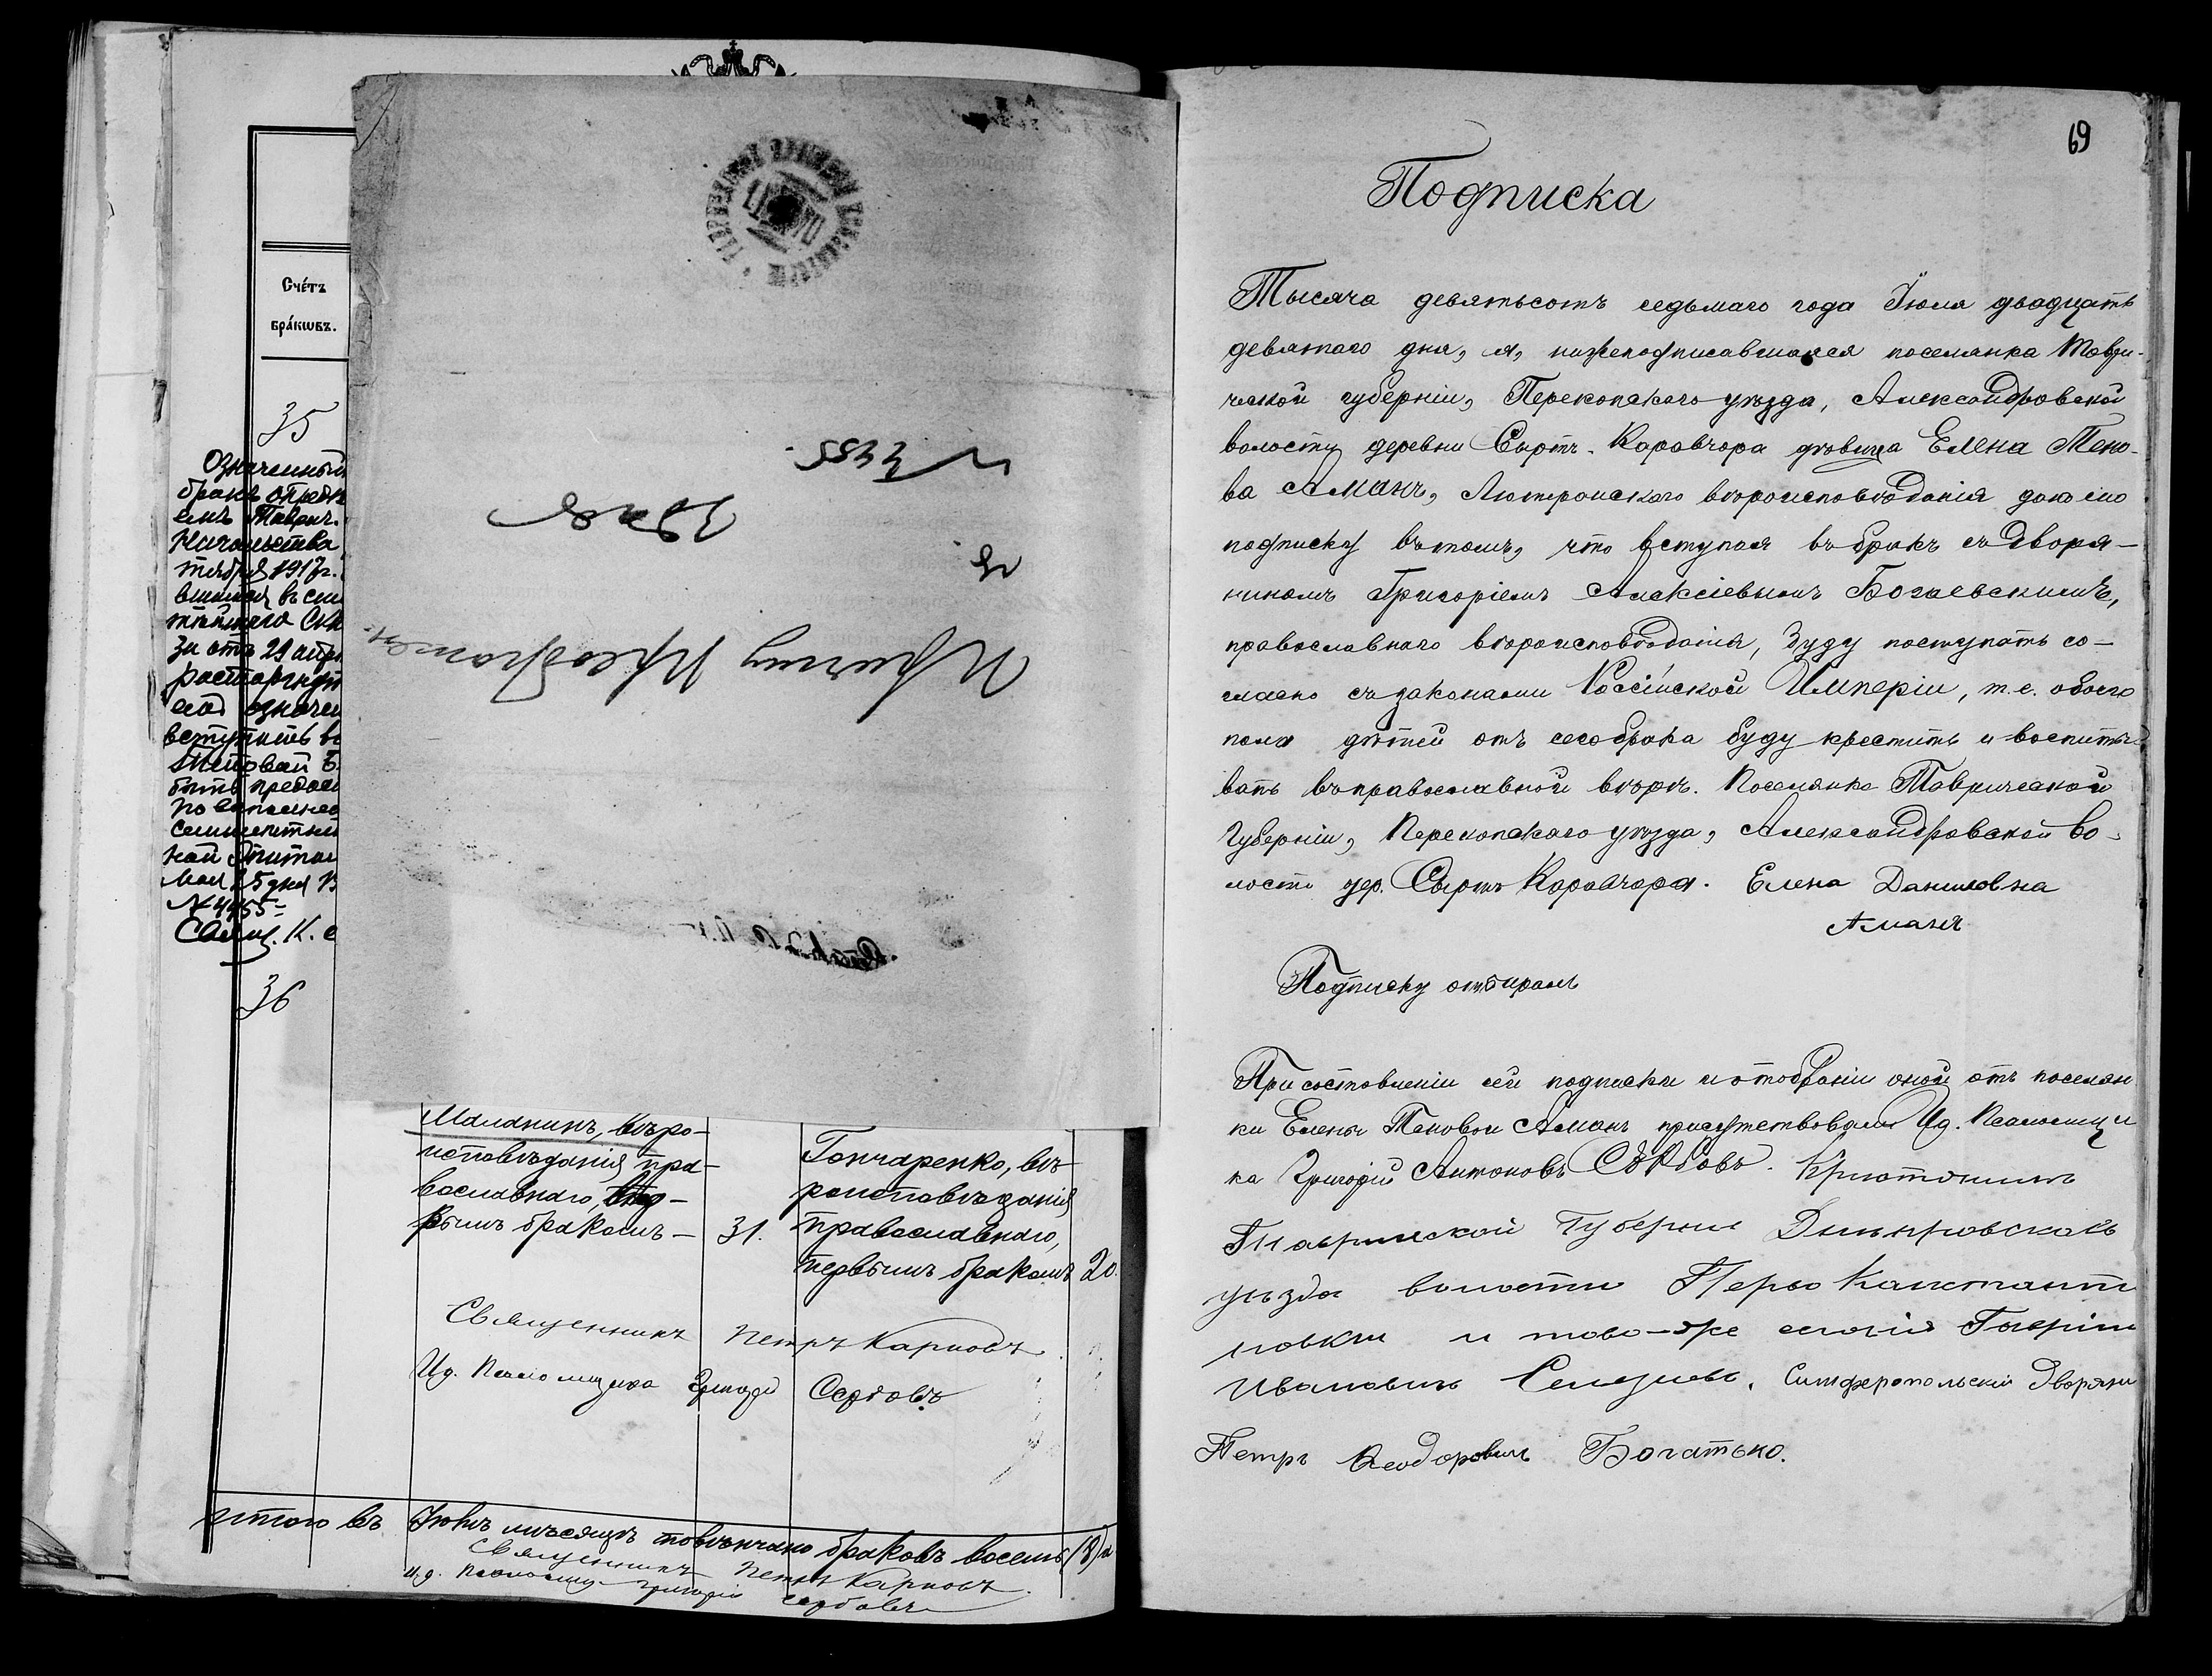 Счéтъ
брáкѡвъ.
35
Означенный
бракъ опредѣ
емъ Таврич.
Начальства
тября 1917г.
вшимся въ си
тѣйшаго Си
за отъ 29 апр
расторгнут
означе
вступить в
Теновой Б
быть предос
по выполне
семилетн
кой Эпитим
Мая 25 дня
№ 4455
Свящ. К. С
36
Причту Преображен.
Здѣсь
№ 3485.
Маланинъ, вѣро-
исповѣданія пра-
вославнаго,
рымъ бракомъ — 31.
Гончаренко, вѣ-
роисповѣданія
православнаго,
первымъ бракомъ 20.
Священникъ Петръ Карповъ.
Ид. Псаломщика Григорій Сербовъ
итого въ Іюнѣ мѣсяцѣ повѣнчано браковъ восемь (8)
Священникъ Петръ Карповъ.
И.д. Псаломщ. Григорій Сербовъ
69
Подписка
Тысяча девятьсотъ седьмаго года Іюля двадцать
девятаго дня, я, нижеподписавшаяся поселянка Таври-
ческой губерніи, Перекопскаго уѣзда, Александровской
волости, деревни Сыртъ-Каравчора дѣвица Елена Тено-
ва Аманъ, Лютеранскаго вѣроисповѣданія даю сію
подписку въ томъ, что вступая въ бракъ съ дворя-
ниномъ Григоріемъ Алексіевымъ Богаевскимъ,
православнаго вѣроисповѣданія, буду поступать со-
гласно съ законами Россійской Имперіи, т.е. обоего
пола дѣтей отъ сего брака буду крестить и воспиты-
вать въ православной вѣрѣ. Поселянка Таврической
Губерніи, Перекопскаго уѣзда, Александровской во-
лости дер. Сыртъ Каравчора. Елена Даниловна
Аманъ
Подписку отбиралъ
При составленіи сей подписки и отобраніи оной отъ поселян
ки Елены Теновой Аманъ присутствовали Ид. Псаломщи
ка Григорій Антоновъ Сербовъ. Кристьянинъ
Таврической Губерніи Днепровскаго
уѣзда волости Перво Канстанти
новки и тово-же селенія
Ивановичъ Симферопольскій Дворянин
Петръ Ѳеодоровичъ Богатько.